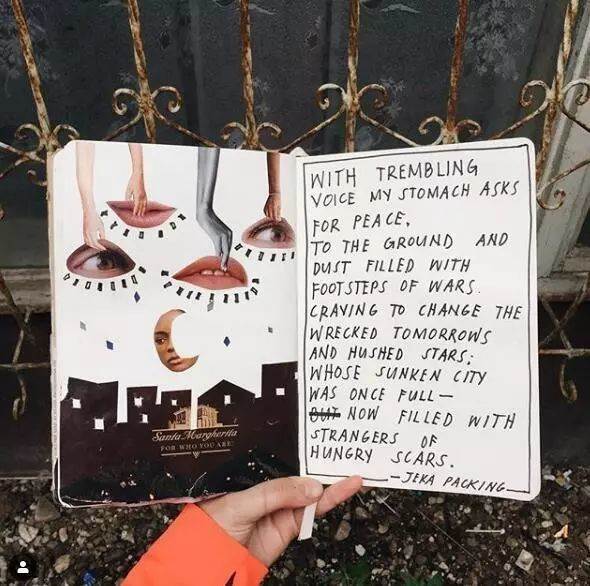 Santa Margherita
FOR WHO YOU ARE
WITH TREMBLING
VOICE MY STOMACH ASKS
FOR PEACE,
TO THE GROUND AND
DUST FILLED WITH
FOOTSTEPS OF WARS.
CRAVING TO CHANGE THE
WRECKED TOMORROWS
AND HUSHED STARS;
WHOSE SUNKEN CITY
WAS ONCE FULL —
BUT NOW FILLED WITH
STRANGERS OF
HUNGRY SCARS.
— JEKA PACKING